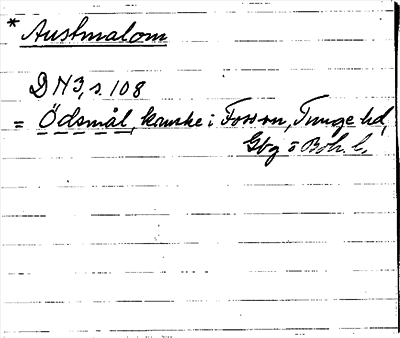 * Austmalom
DN 3, s. 108
= Ödsmål, kanske i Forson, Tunge hd,
Gbg o Boh. l.